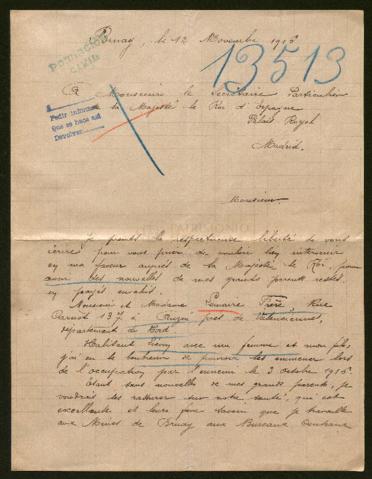 Bruay, le 12 Novembre 1915
POBLACION
CIVIL
13513
A Monsieur le Secrétaire Particulier
de la Majesté le Roi d'Espagne
Palais Royal
Madrid.
Pedir informes
que se hace así
Devolver
Monsieur
Je prends la respectueuse liberté de vous
écrire pour vous prier de vouloir bien
en ma faveur auprès de sa Majesté le Roi, pour
avoir des nouvelles de mes grands parents restés
en pays envahis.
Monsieur et Madame Lemaire Rue
Carnot 137 à près de Valenciennes,
département du Nord.
Habitant avec ma femme et mon fils,
j'ai eu le de pouvoir les emmener lors
de l'occupation par l'ennemi le 2 octobre 1915.
Etant sans nouvelles de mes grands parents, je
voudrais les rassurer sur notre santé, qui est
excellente et leur faire savoir que je travaille
aux Mines de Bruay aux Bureaux Centraux